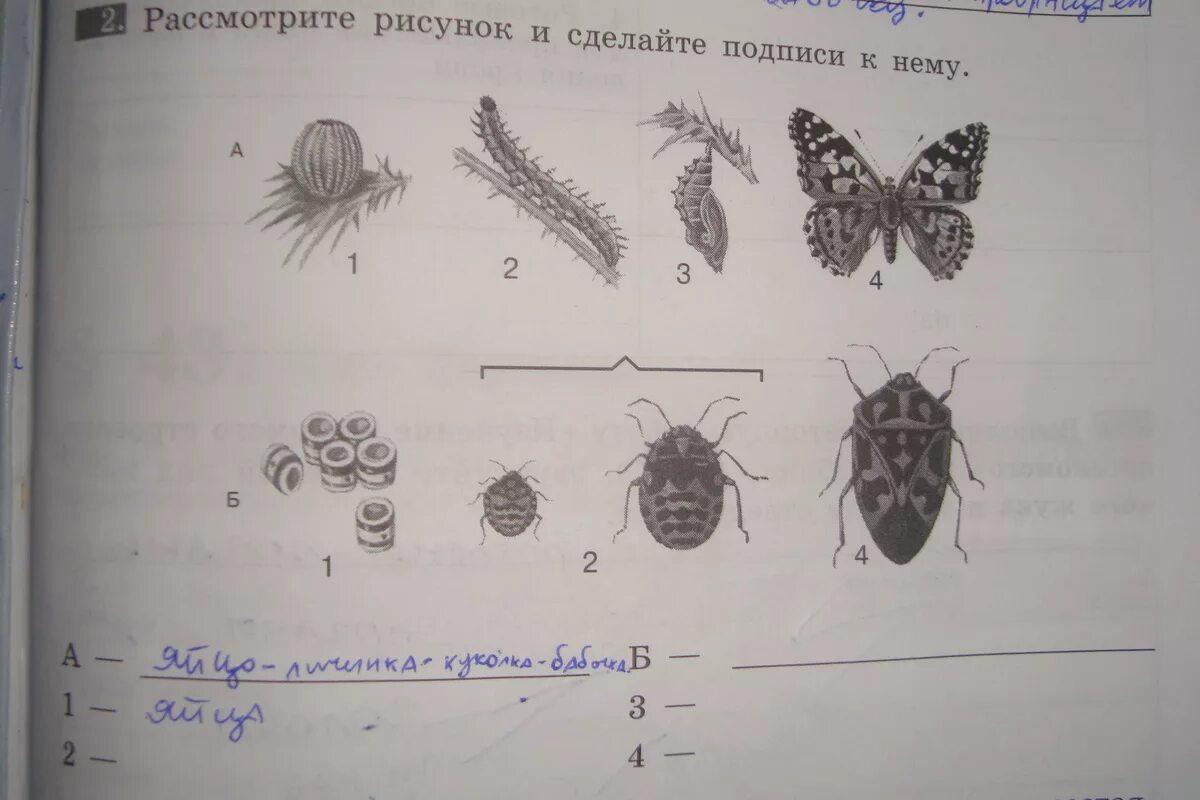 2. Рассмотрите рисунок и сделайте подписи к нему.
А
1 2 3 4
Б
1 2 4
А — яйцо-личинка-куколка-бабочка Б —
1 — яйца 3 —
2 — 4 —